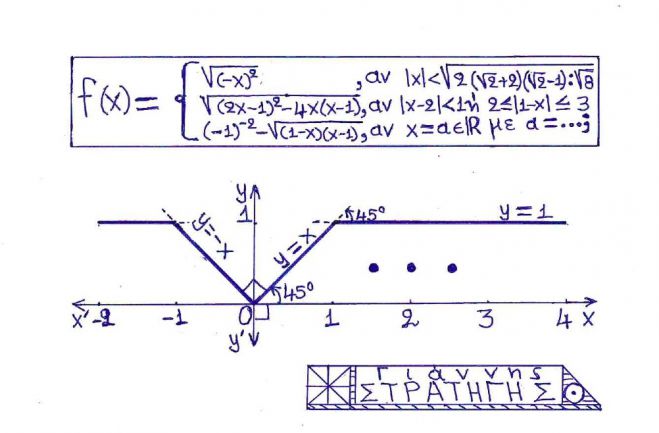 f(x) = { √(-x)² , αν |x| < √2(√2+2)(√2-1):√8
√(2x-1)²-4x(x-1), αν |x-2|<1 ή 2≤|1-x|≤3
(-1)⁻²-√(1-x)(x-1), αν x=α∈ℝ με α=...;
y
1
y=-x
y=x
45°
y=1
45°
x' -2 -1 0 1 2 3 4 x
y'
Γιάννης
ΣΤΡΑΤΗΓΗΣ